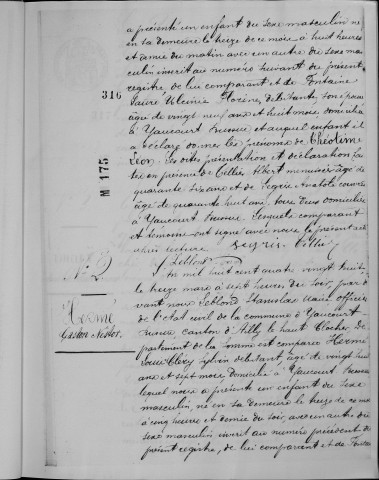 a présenté un enfant du sexe masculin né
en sa demeure le treize de ce mois à huit heures
et demie du matin avec un autre du sexe mas
culin inscrit au numéro suivant du présent
registre, de lui comparant et de Fontaine
316
Florine, débitante, son épouse
âgée de vingt neuf ans et huit mois, domiciliée
à Yaucourt Bussu et auquel enfant il
a déclaré donner les prénoms de Théotime
Léon. Les dites présentation et déclaration fai
M 175
tes en présence de Cellier Albert menuisier âgé de
quarante six ans et de Segris Anatole couvreur
âgé de quarante huit ans, tous deux domiciliés
à Yaucourt Bussu, lesquels comparant
et témoins ont signé avec nous le présent acte
après lecture.
Segris Cellier
Leblond
N° 2
Hermé
Gaston Nestor.
L'an mil huit cent quatre vingt huit
le treize mars à sept heures du soir, par de
vant nous Leblond Stanislas maire officier
de l'état civil de la commune d'Yaucourt-
Bussu canton d'Ailly le haut Clocher dé
partement de la Somme est comparu Hermé
Sylvin débitant, âgé de vingt huit
ans et sept mois domicilié à Yaucourt Bussu
lequel nous a présenté un enfant du sexe
masculin, né en sa demeure le treize de ce mois
à cinq heures et demie du soir, avec un autre du
sexe masculin inscrit au numéro précédent du
présent registre, de lui comparant et de Fontaine